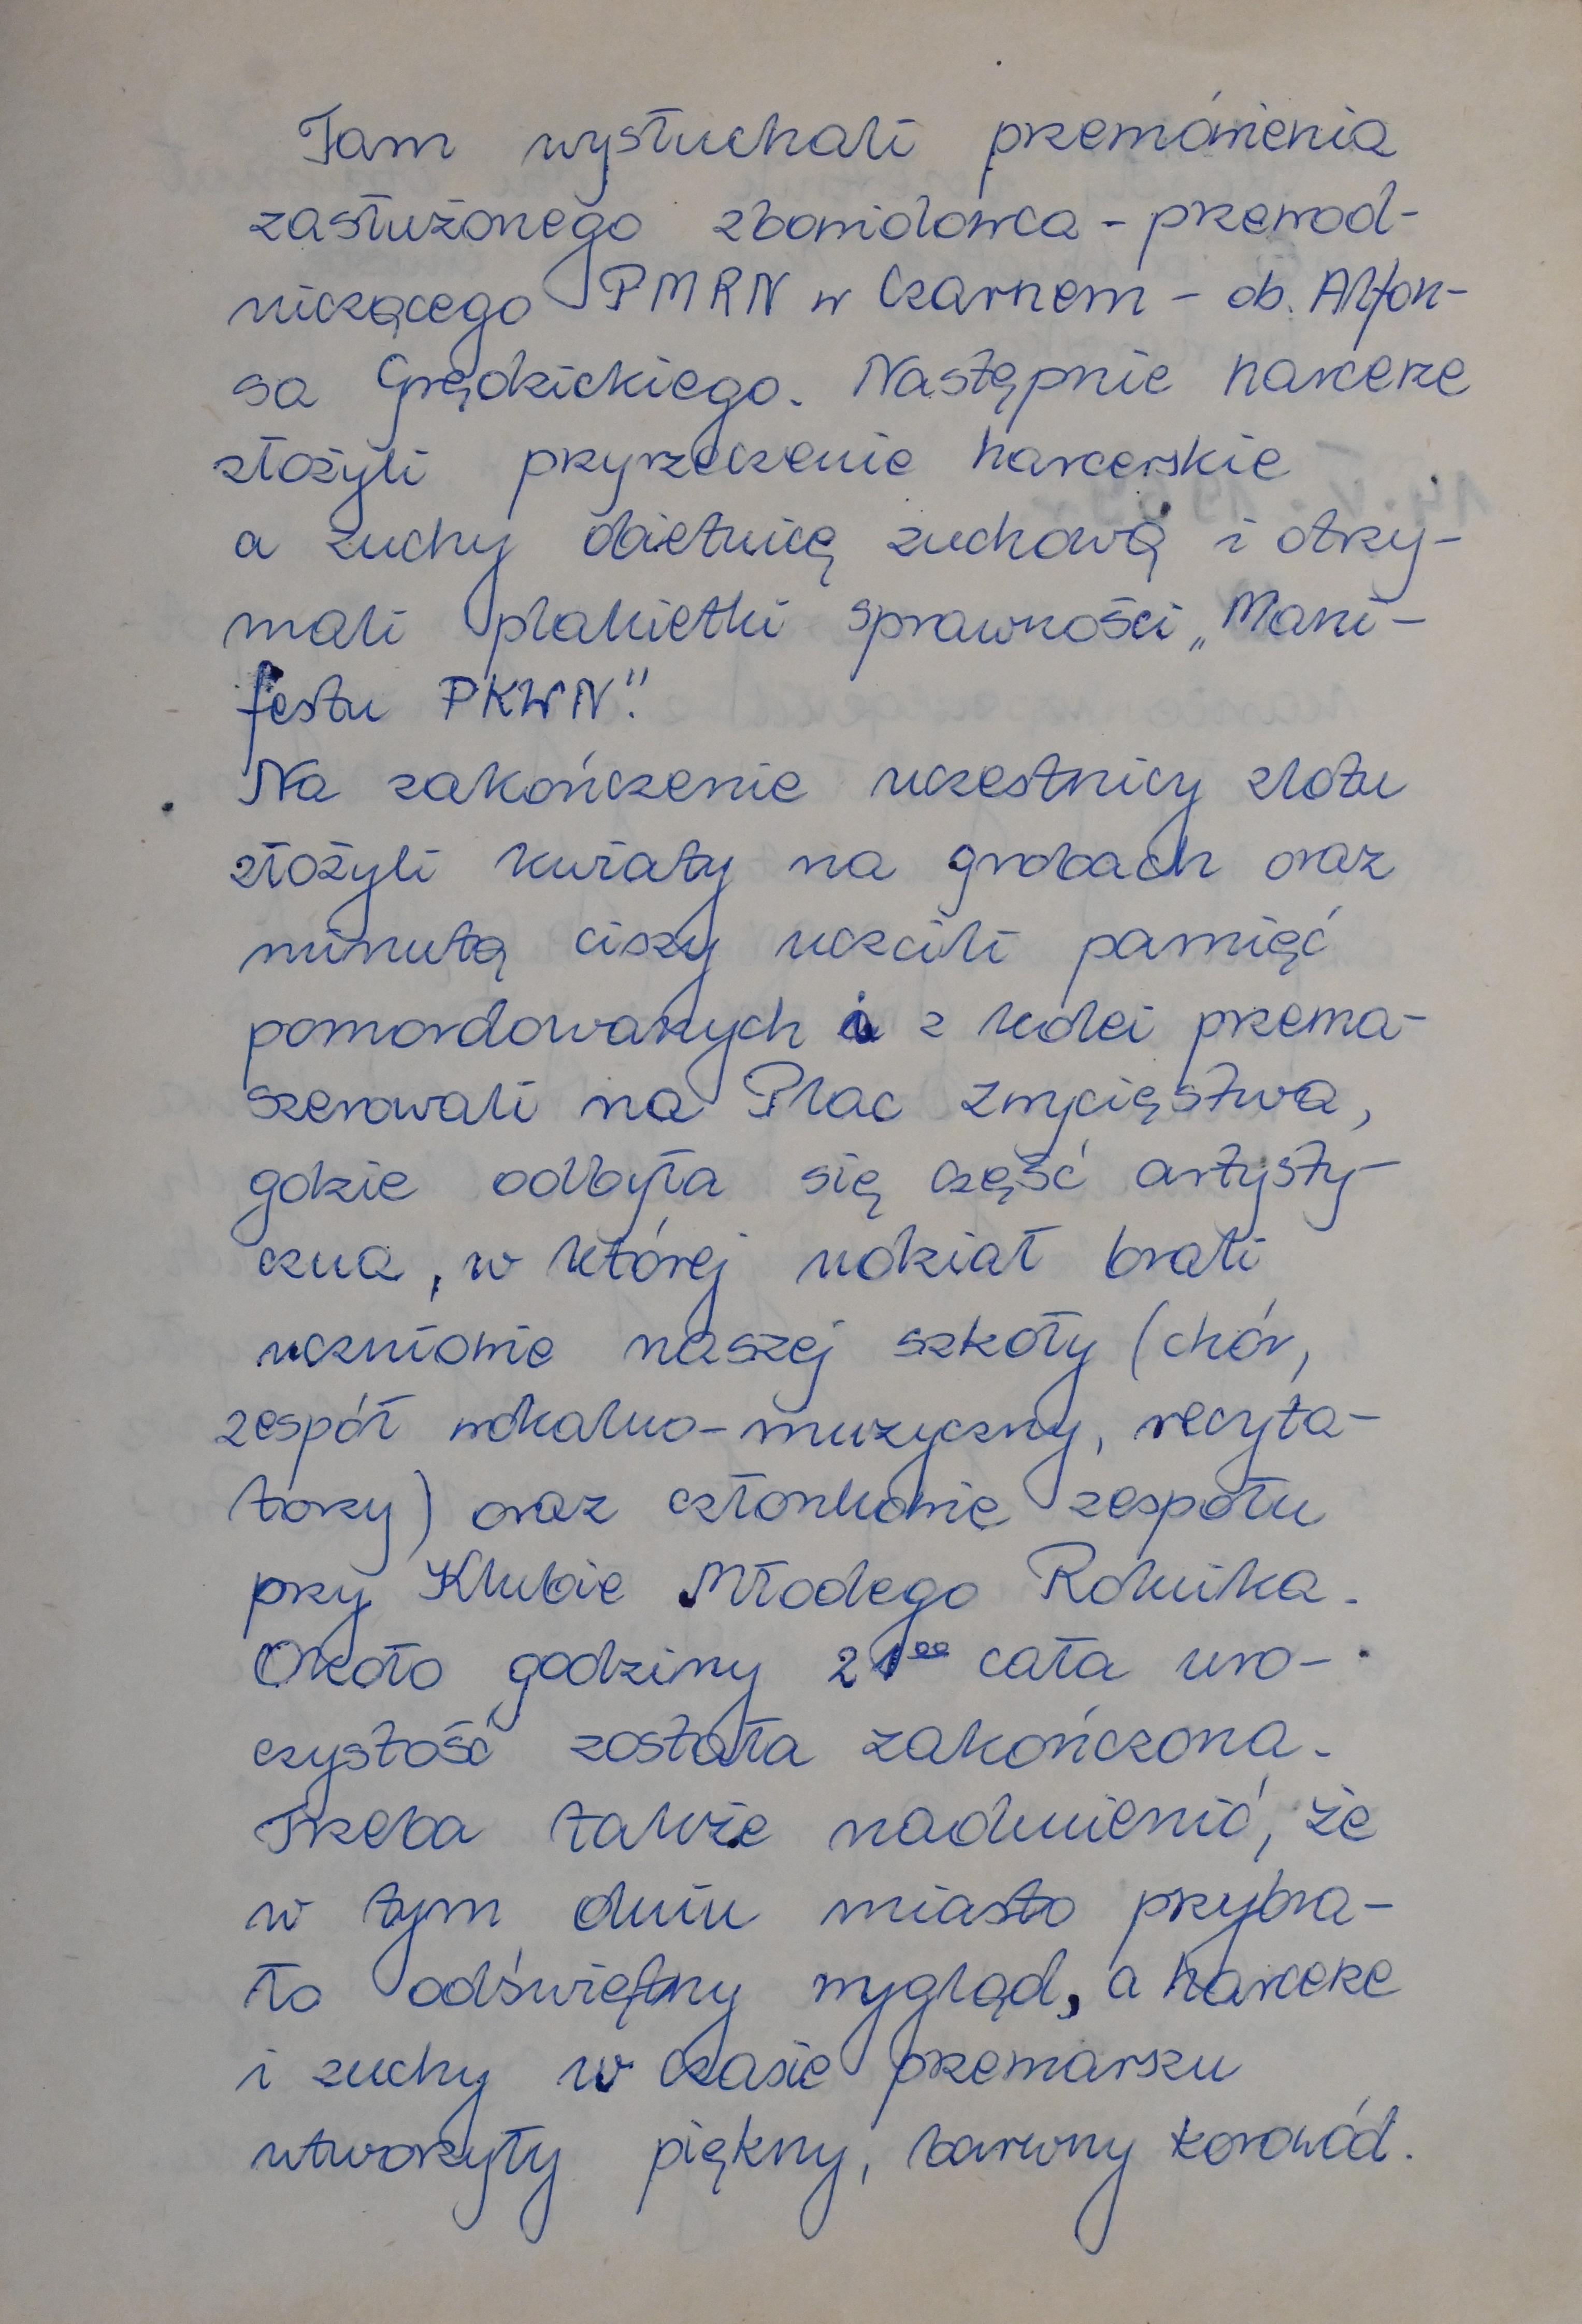 Tam wysłuchali przemówienia
zasłużonego zbowidowca - przewod-
niczącego PMRN w Czarnem - ob. Alfon-
sa Grędzickiego. Następnie harcerze
złożyli przyrzeczenie harcerskie
a zuchy obietnicę zuchową i otrzy-
mali plakietki sprawności „Mani-
festu PKWN".
Na zakończenie uczestnicy zlotu
złożyli kwiaty na grobach oraz
minutą ciszy uczcili pamięć
pomordowanych i z kolei przema-
szerowali na Plac Zwycięstwa,
gdzie odbyła się część artysty-
czna, w której udział brali
uczniowie naszej szkoły (chór,
zespół wokalno-muzyczny, recyta-
torzy) oraz członkowie zespołu
przy Klubie Młodego Rolnika.
Około godziny 21⁰⁰ cała uro-
czystość została zakończona.
Trzeba także nadmienić, że
w tym dniu miasto przybra-
ło odświętny wygląd, a harcerze
i zuchy w czasie przemarszu
utworzyły piękny, barwny korowód.